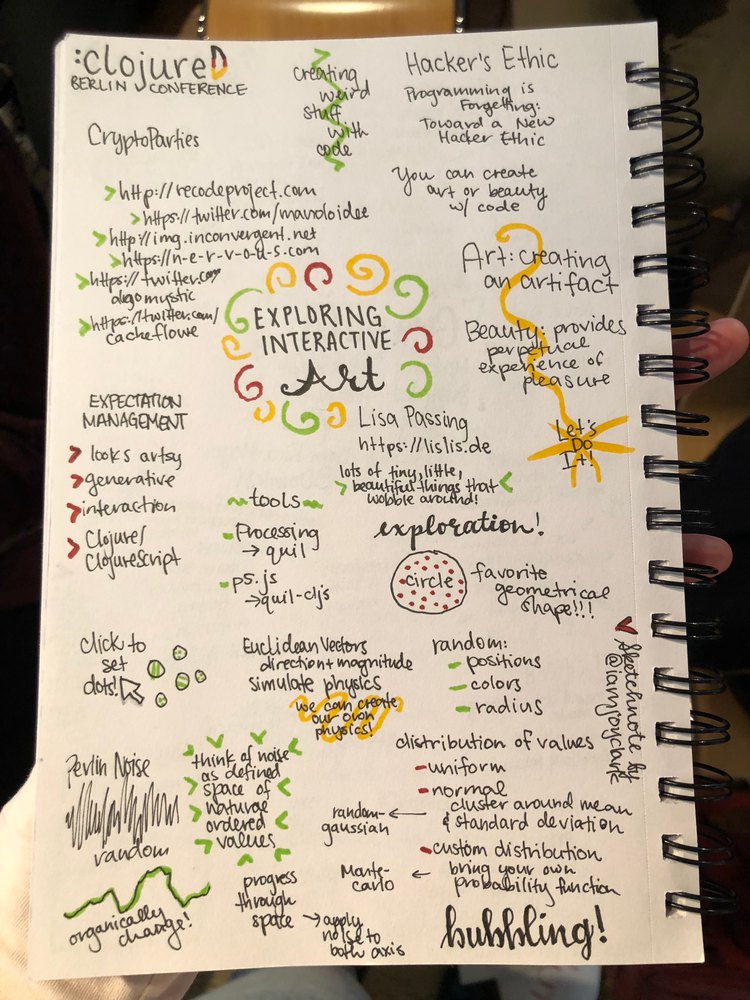 :clojureD
BERLIN CONFERENCE
creating
weird
stuff
with
code
Hacker's Ethic
Programming is
Forgetting:
Toward a New
Hacker Ethic
CryptoParties
You can create
art or beauty
w/ code
> http://recodeproject.com
> https://twitter.com/manoloidee
> http://img.inconvergent.net
> https://n-e-r-v-o-u-s.com
> https://twitter.com/
algomystic
> https://twitter.com/
cacheflowe
EXPLORING
INTERACTIVE
Art
Lisa Passing
https://lislis.de
Art: creating
an artifact
Beauty: provides
perpetual
experience of
pleasure
Let's
Do
It!
EXPECTATION
MANAGEMENT
> looks artsy
> generative
> interaction
> Clojure/
ClojureScript
lots of tiny, little,
> beautiful things that <
wobble around!
~tools~
- Processing
→ quil
- p5.js
→ quil-cljs
exploration!
circle
favorite
geometrical
shape!!!
click to
set
dots!
Euclidean Vectors
direction + magnitude
simulate physics
we can create
our own
physics!
random:
- positions
- colors
- radius
Sketchnote by
@iamjoyclark
Perlin Noise
random
organically
change!
think of noise
as defined
space of
natural
ordered
values
progress
through
space → apply
noise to
both axis
distribution of values
- uniform
- normal
cluster around mean
& standard deviation
random-
gaussian ←
- custom distribution
bring your own
probability function
Monte-
carlo ←
bubbling!